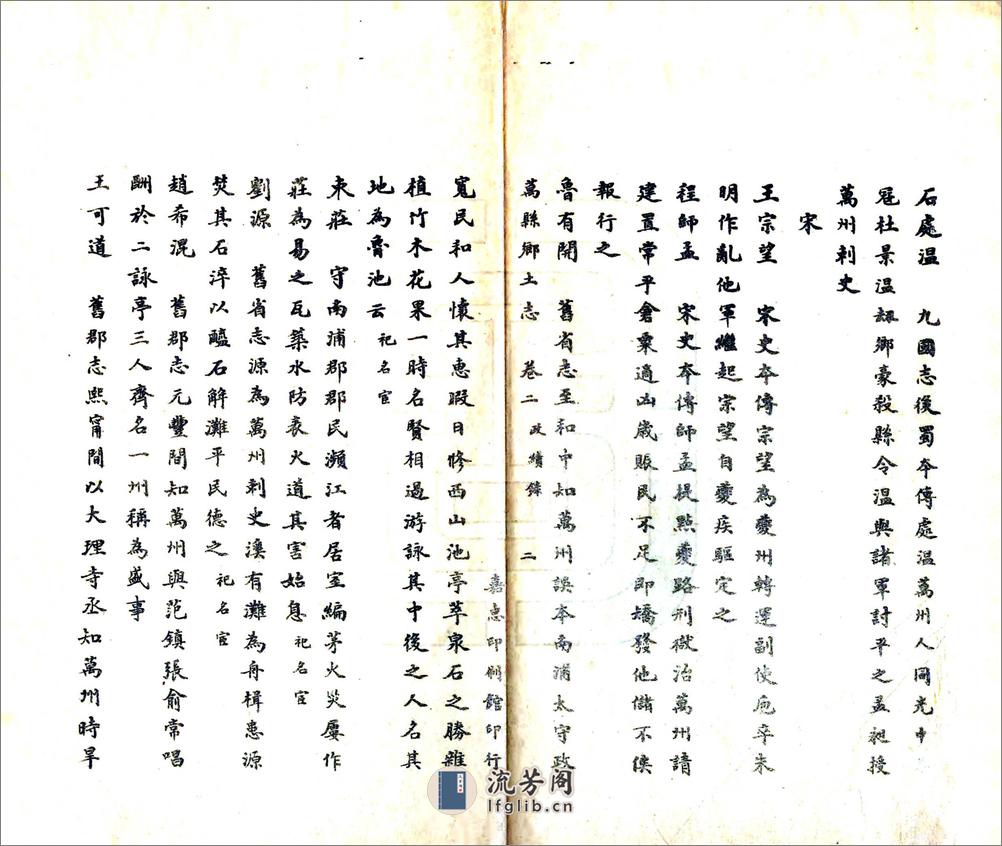 石處溫　九國志後蜀本傳處溫萬州人同光中
冠杜景溫刼鄉豪殺縣令溫與諸軍討平之孟昶授
萬州刺史
宋
王宗望　宋史本傳宗望為夔州轉運副使庖卒朱
明作亂他軍繼起宗望自夔疾驅定之
程師孟　宋史本傳師孟提點夔路刑獄治萬州請
建置常平倉粟適凶歲賑民不足即矯發他儲不俟
報行之
魯有開　舊省志至和中知萬州誤本南浦太守政
萬縣鄉土志　卷二　政績錄　二
嘉惠印刷館印行
寬民和人懷其惠暇日修西山池亭萃泉石之勝雜
植竹木花果一時名賢相過游詠其中後之人名其
地為魯池云　祀名宦
束莊　守南浦郡郡民瀕江者居室編茅火災屢作
莊為易之瓦築水防袤火道其害始息　祀名宦
劉源　舊省志源為萬州刺史溪有灘為舟楫患源
焚其石淬以醯石解灘平民德之　祀名宦
趙希混　舊郡志元豐間知萬州與范鎮張俞常唱
酬於二詠亭三人齊名一州稱為盛事
王可道　舊郡志熙甯間以大理寺丞知萬州時旱
流芳阁
lfglib.cn